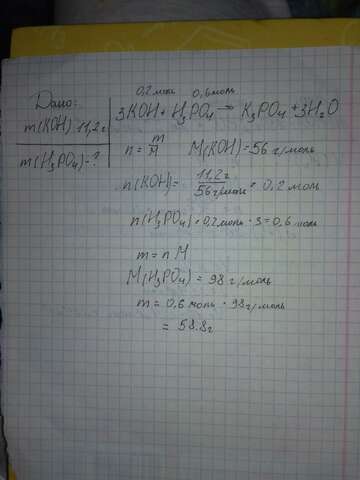 Дано:
m(KOH) 11,2г
m(H₃PO₄)-?
0,2моль 0,6моль
3KOH + H₃PO₄ → K₃PO₄ + 3H₂O
n = m/M M(KOH) = 56 г/моль
n(KOH) = 11,2г/56г/моль = 0,2 моль
n(H₃PO₄) = 0,2моль · 3 = 0,6 моль
m = n M
M(H₃PO₄) = 98 г/моль
m = 0,6 моль · 98г/моль
= 58.8г